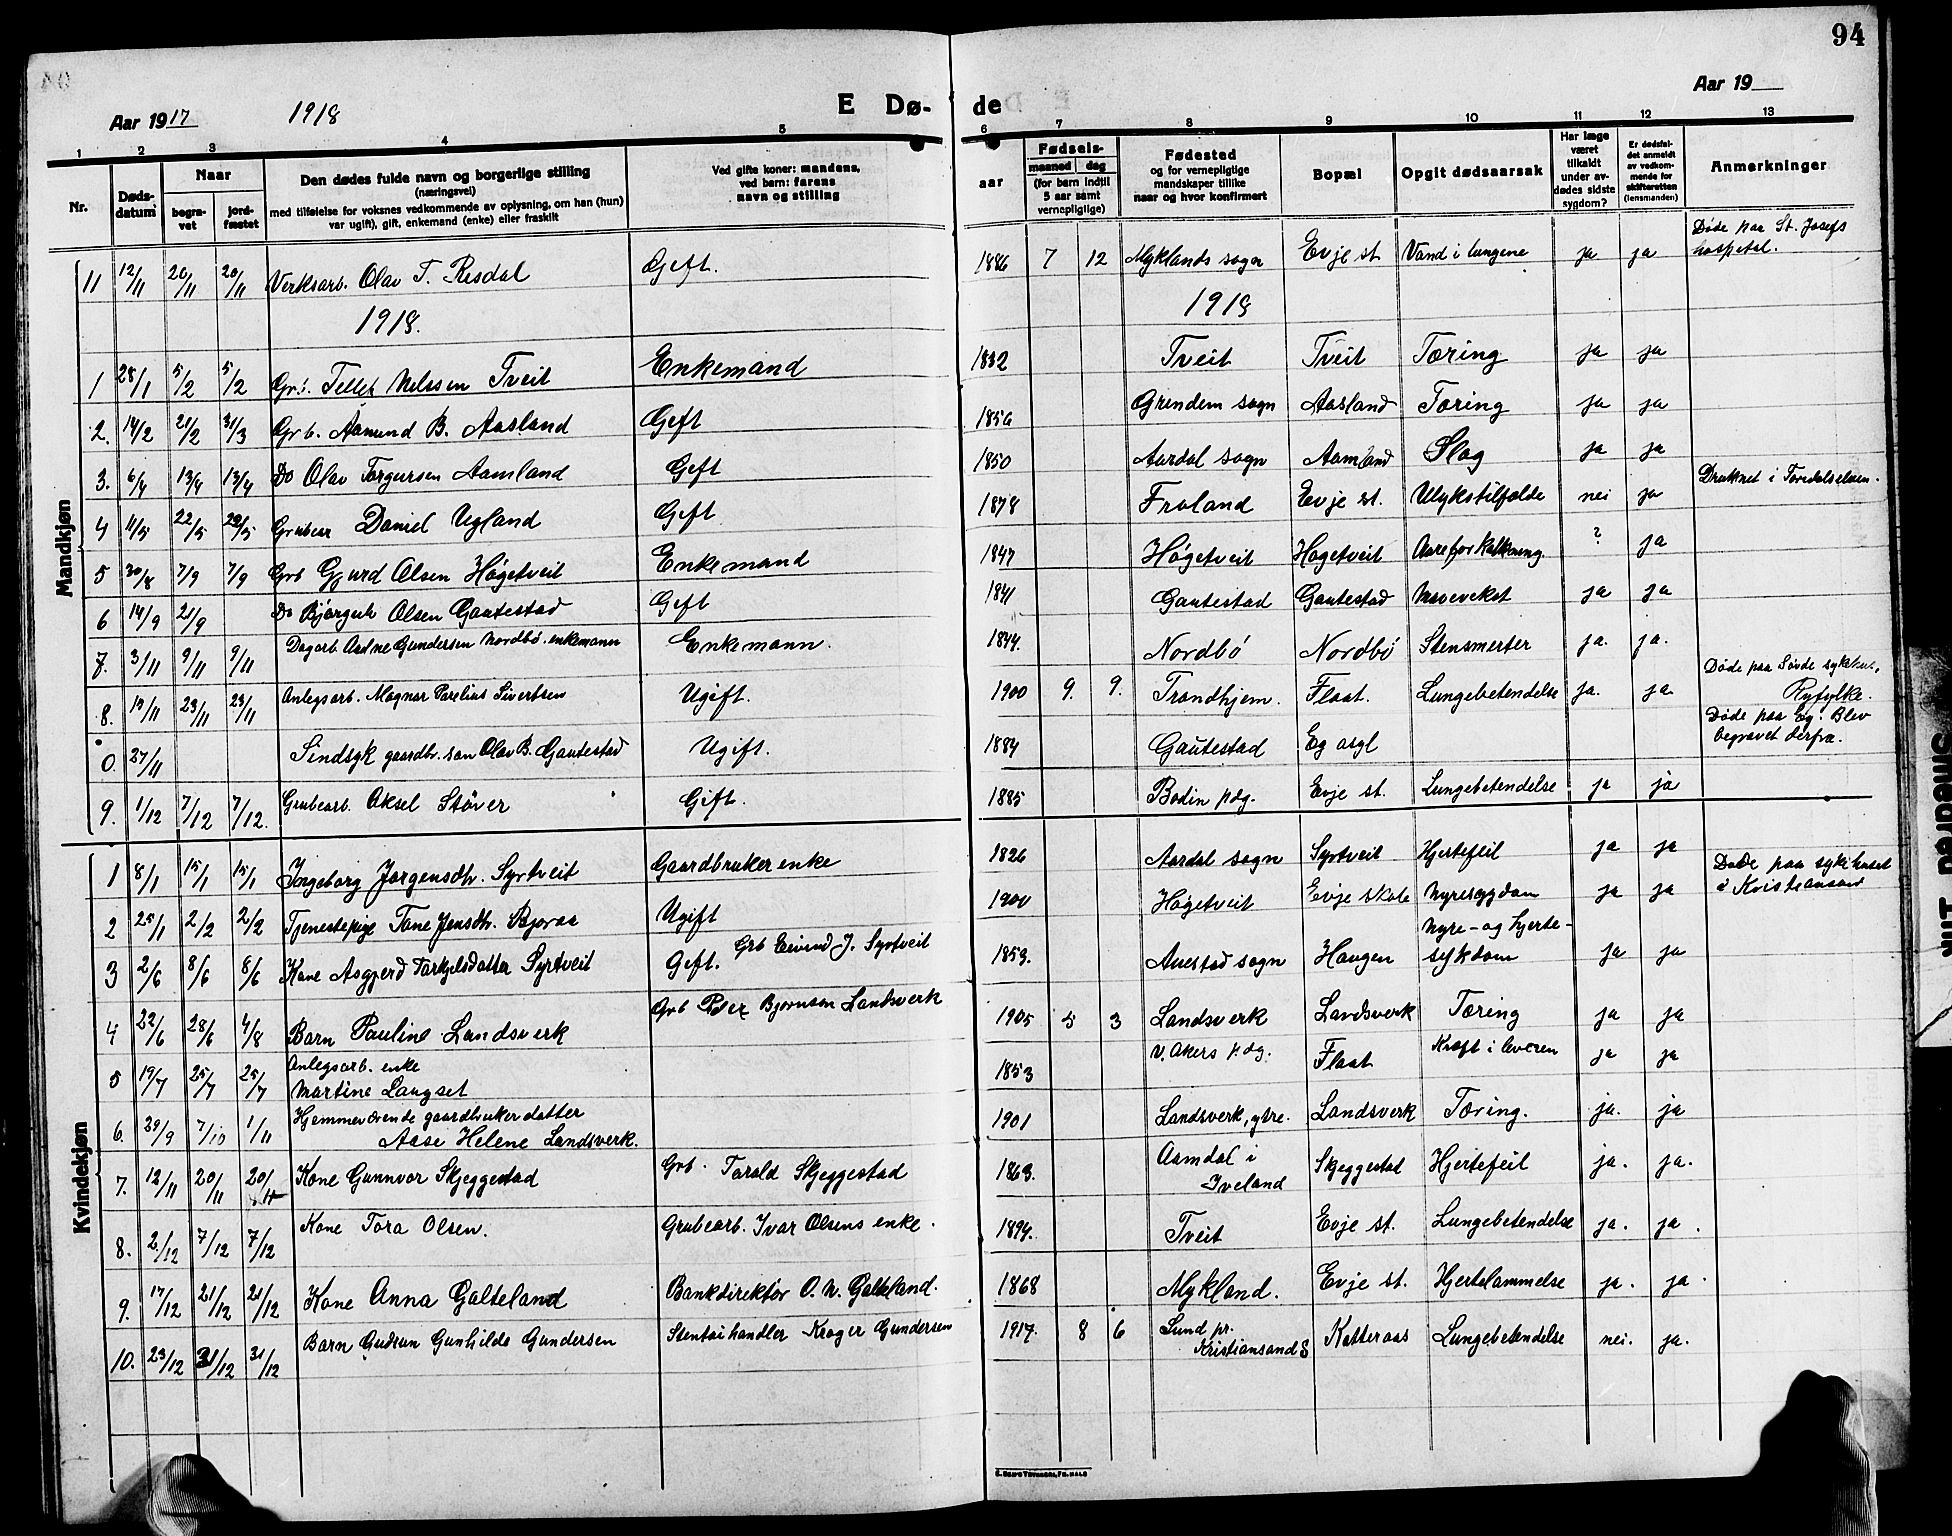 94
Aar 1917 1918 E Dø- de Aar 19
1 2 3 4 5 6 7 8 9 10 11 12 13
Nr. Dødsdatum Naar begravet jordfæstet
Den dødes fulde navn og borgerlige stilling
(næringsvei)
med tilføielse for voksnes vedkommende av oplysning, om han (hun)
var ugift), gift, enkemand (enke) eller fraskilt
Ved gifte koner: mandens,
ved barn: farens
navn og stilling
aar Fødsels- maaned dag
(for barn indtil
5 aar samt
vernepligtige)
Fødested
og for vernepligtige
mandskaper tillike
naar og hvor konfirmert
Bopæl
Opgit dødsaarsak
Har læge
været
tilkaldt
under av-
dødes sidste
sygdom?
Er dødsfal-
det anmeldt
av vedkom-
mende for
skifteretten
(lensmanden)
Anmerkninger
Mandkjøn
11 12/11 20/11 20/11 Verksarb. Olav T. Risdal Gift. 1886 7 12 Myklands sogn Evje st Vand i lungene ja ja Døde paa St. Josefs hospetal.
1918. 1918
1 28/1 5/2 5/2 Grb. Tellef Nilssen Tveit Enkemand 1832 Tveit Tveit Tæring ja ja
2. 14/2 21/2 31/3 Grb. Aamund B. Aasland Gift 1856 Grendem sogn Aasland Tæring ja ja
3. 6/4 13/4 13/4 Do Olav Torgersen Aamland Gift 1850 Aardal sogn Aamland Slag ja ja
4 11/5 22/5 22/5 Grubear Daniel Ugland Gift 1878 Froland Evje st. Ulykstilfælde nei ja Druknet i Toredalselven.
5 30/8 7/9 7/9 Grb Gjurd Olsen Høgetveit Enkemand 1847 Høgetveit Høgetveit Aareforkalkning ? ja
6 14/9 21/9 Do Bjørgulv Olsen Gautestad Gift 1841 Gautestad Gautestad Maveveket ja ja
7. 3/11 9/11 9/11 Dagarb. Aadne Gundersen Nordbø. enkemann Enkemann. 1844. Nordbø Nordbø Stensmerter ja. ja.
8. 19/11 23/11 23/11 Anlegsarb. Magnar Parelius Sivertsen Ugift. 1900 9. 9. Trondhjem. Flaat. Lungebetendelse ja. ja Døde paa Sande sykehus, Ryfylke.
0. 27/11 Sindsyk gaardbr. søn Olav B. Gautestad Ugift. 1884 Gautestad Eg asyl Døde paa Eg. Blev begravet derfra.
9. 1/12 7/12 7/12. Grubearb. Aksel Støver Gift. 1885 Bodin pdg. Evje st. Lungebetendelse ja ja
Kvindekjøn
1 8/1 15/1 15/1 Ingeborg Jørgensdtr. Syrtveit Gaardbruker enke 1826 Aardal sogn Syrtveit Hjertefeil ja ja
2 25/1 2/2 2/2 Tjenestepige Tone Jensdtr. Bjoraa Ugift 1900 Høgetveit Evje skole Nyresygdom ja ja Døde paa sykhuset i Kristiansand
3 2/6 8/6 8/6 Kone Asgjerd Tarkjelsdatter Syrtveit Gift. Grb Eivind J. Syrtveit 1853. Austad sogn Haugen Nyre- og hjerte- sykdom ja ja
4 22/6 28/6 4/8 Barn Pauline Landsverk Grb Peder Bjørnson Landsverk 1905 5 3 Landsverk Landsverk Tæring ja ja
5 19/7 25/7 25/7 Anlegsarb. enke Martine Langset 1853 V. Akers p.dg. Flaat Kræft i leveren ja ja
6. 29/9 7/10 1/11 Hjemmeværende gaardbruker datter Aase Helene Landsverk. 1901 Landsverk, ytre. Landsverk Tæring. ja. ja
7. 12/11 20/11 20/11 Kone Gunnvor Skjeggestad Grb. Torald Skjeggestad 1863. Aamdal i Iveland Skjeggestad Hjertefeil ja. ja.
8. 2/12 7/12 7/12 Kone Tora Olsen. Grubearb. Ivar Olsens enke. 1894. Tveit Evje st. Lungebetendelse ja. ja.
9. 17/12 21/12 21/12 Kone Anna Galteland Bankdirektør O. N. Galteland. 1868 Mykland. Evje st. Hjertelammelse ja. ja.
10. 23/12 31/12 31/12 Barn Gudrun Gunhilde Gundersen Stentøihandler Krøger Gundersen 1917. 8 6 Lund pr. Kristiansand S Katteraas Lungebetendelse nei. ja.